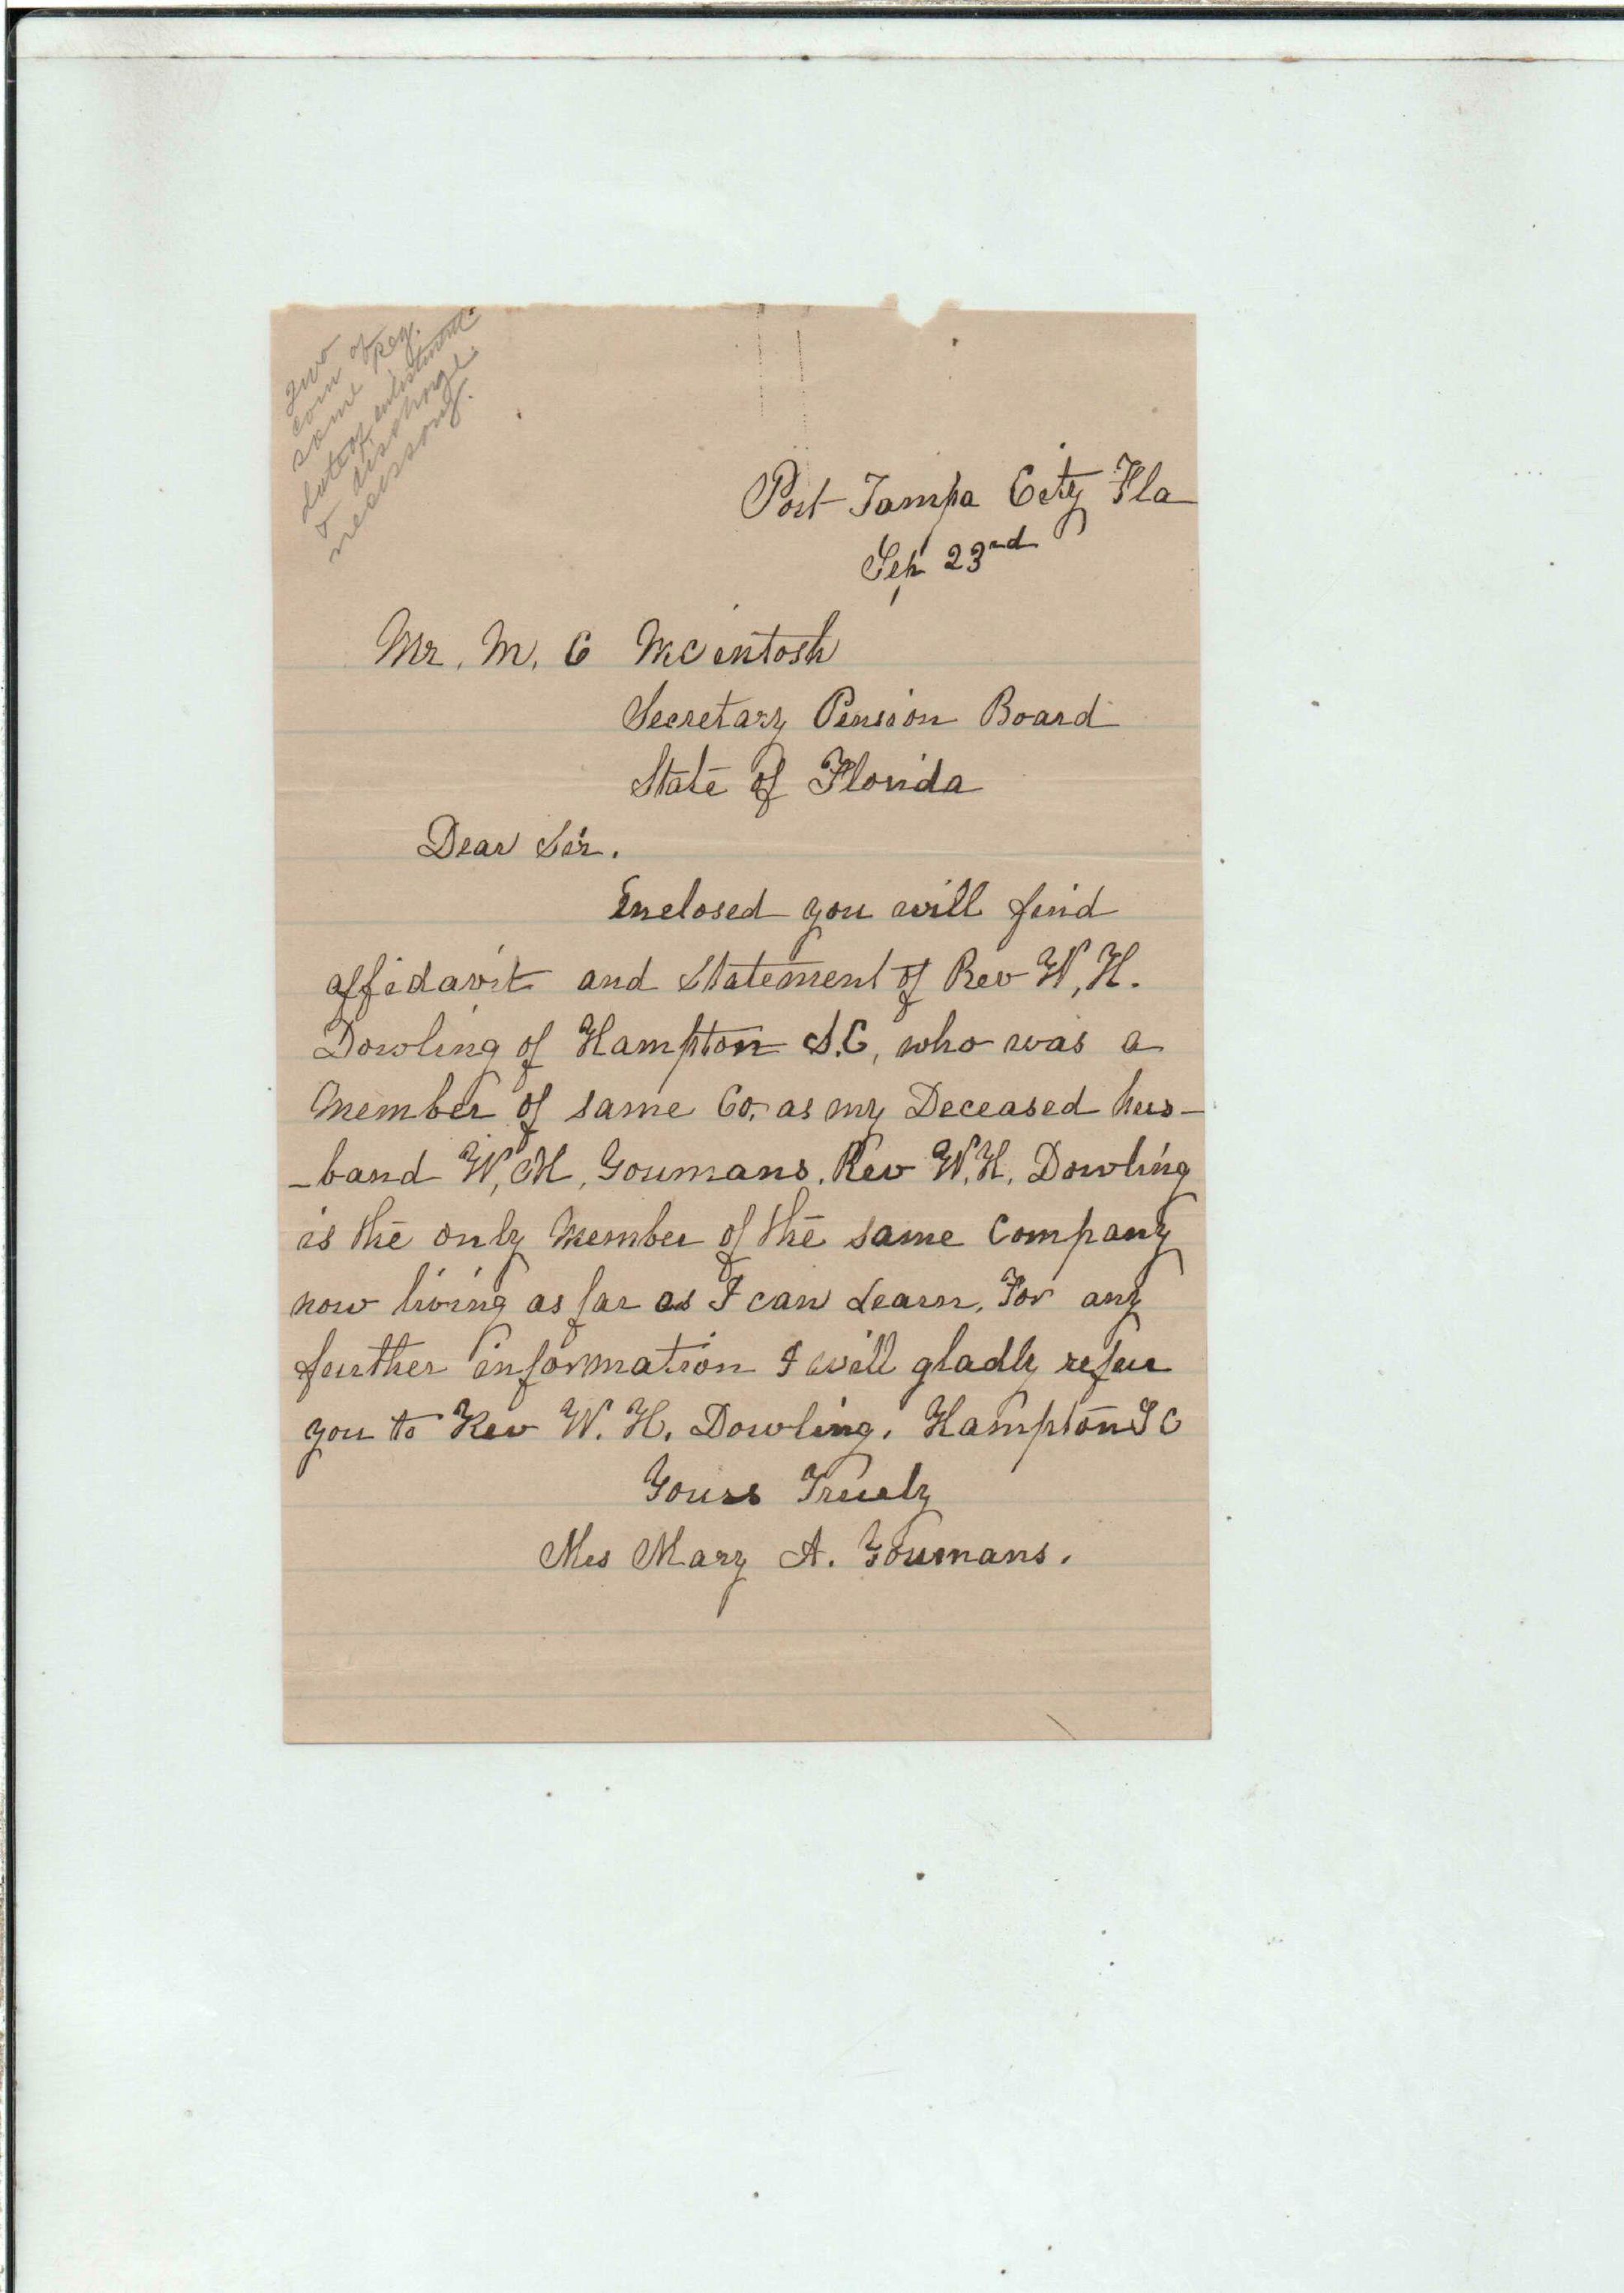 two
com of
same Reg.
date of enlistment
& discharge
necessary.
Port Tampa City Fla
Sep 23nd
Mr. M. C McIntosh
Secretary Pension Board
State of Florida
Dear Sir.
Enclosed you will find
affidavit and Statement of Rev W, H.
Dowling of Hampton S.C, who was a
Member of same Co. as my Deceased hus-
-band W, M, Youmans. Rev W. H. Dowling
is the only Member of the same Company
now living as far as I can Learn. For any
further information I will gladly refer
you to Rev W. H. Dowling. Hampton S C
Yours Truely
Mrs Mary A. Youmans.